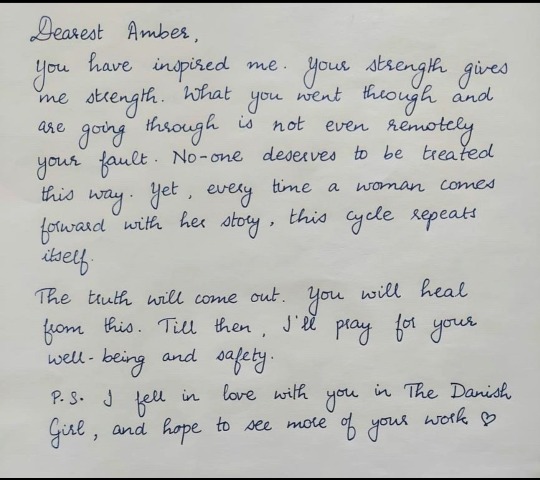 Dearest Amber,
You have inspired me. Your strength gives
me strength. What you went through and
are going through is not even remotely
your fault. No-one deserves to be treated
this way. Yet, every time a woman comes
forward with her story, this cycle repeats
itself.
The truth will come out. You will heal
from this. Till then, I'll pray for your
well-being and safety.
P.S. I fell in love with you in The Danish
Girl, and hope to see more of your work ♡